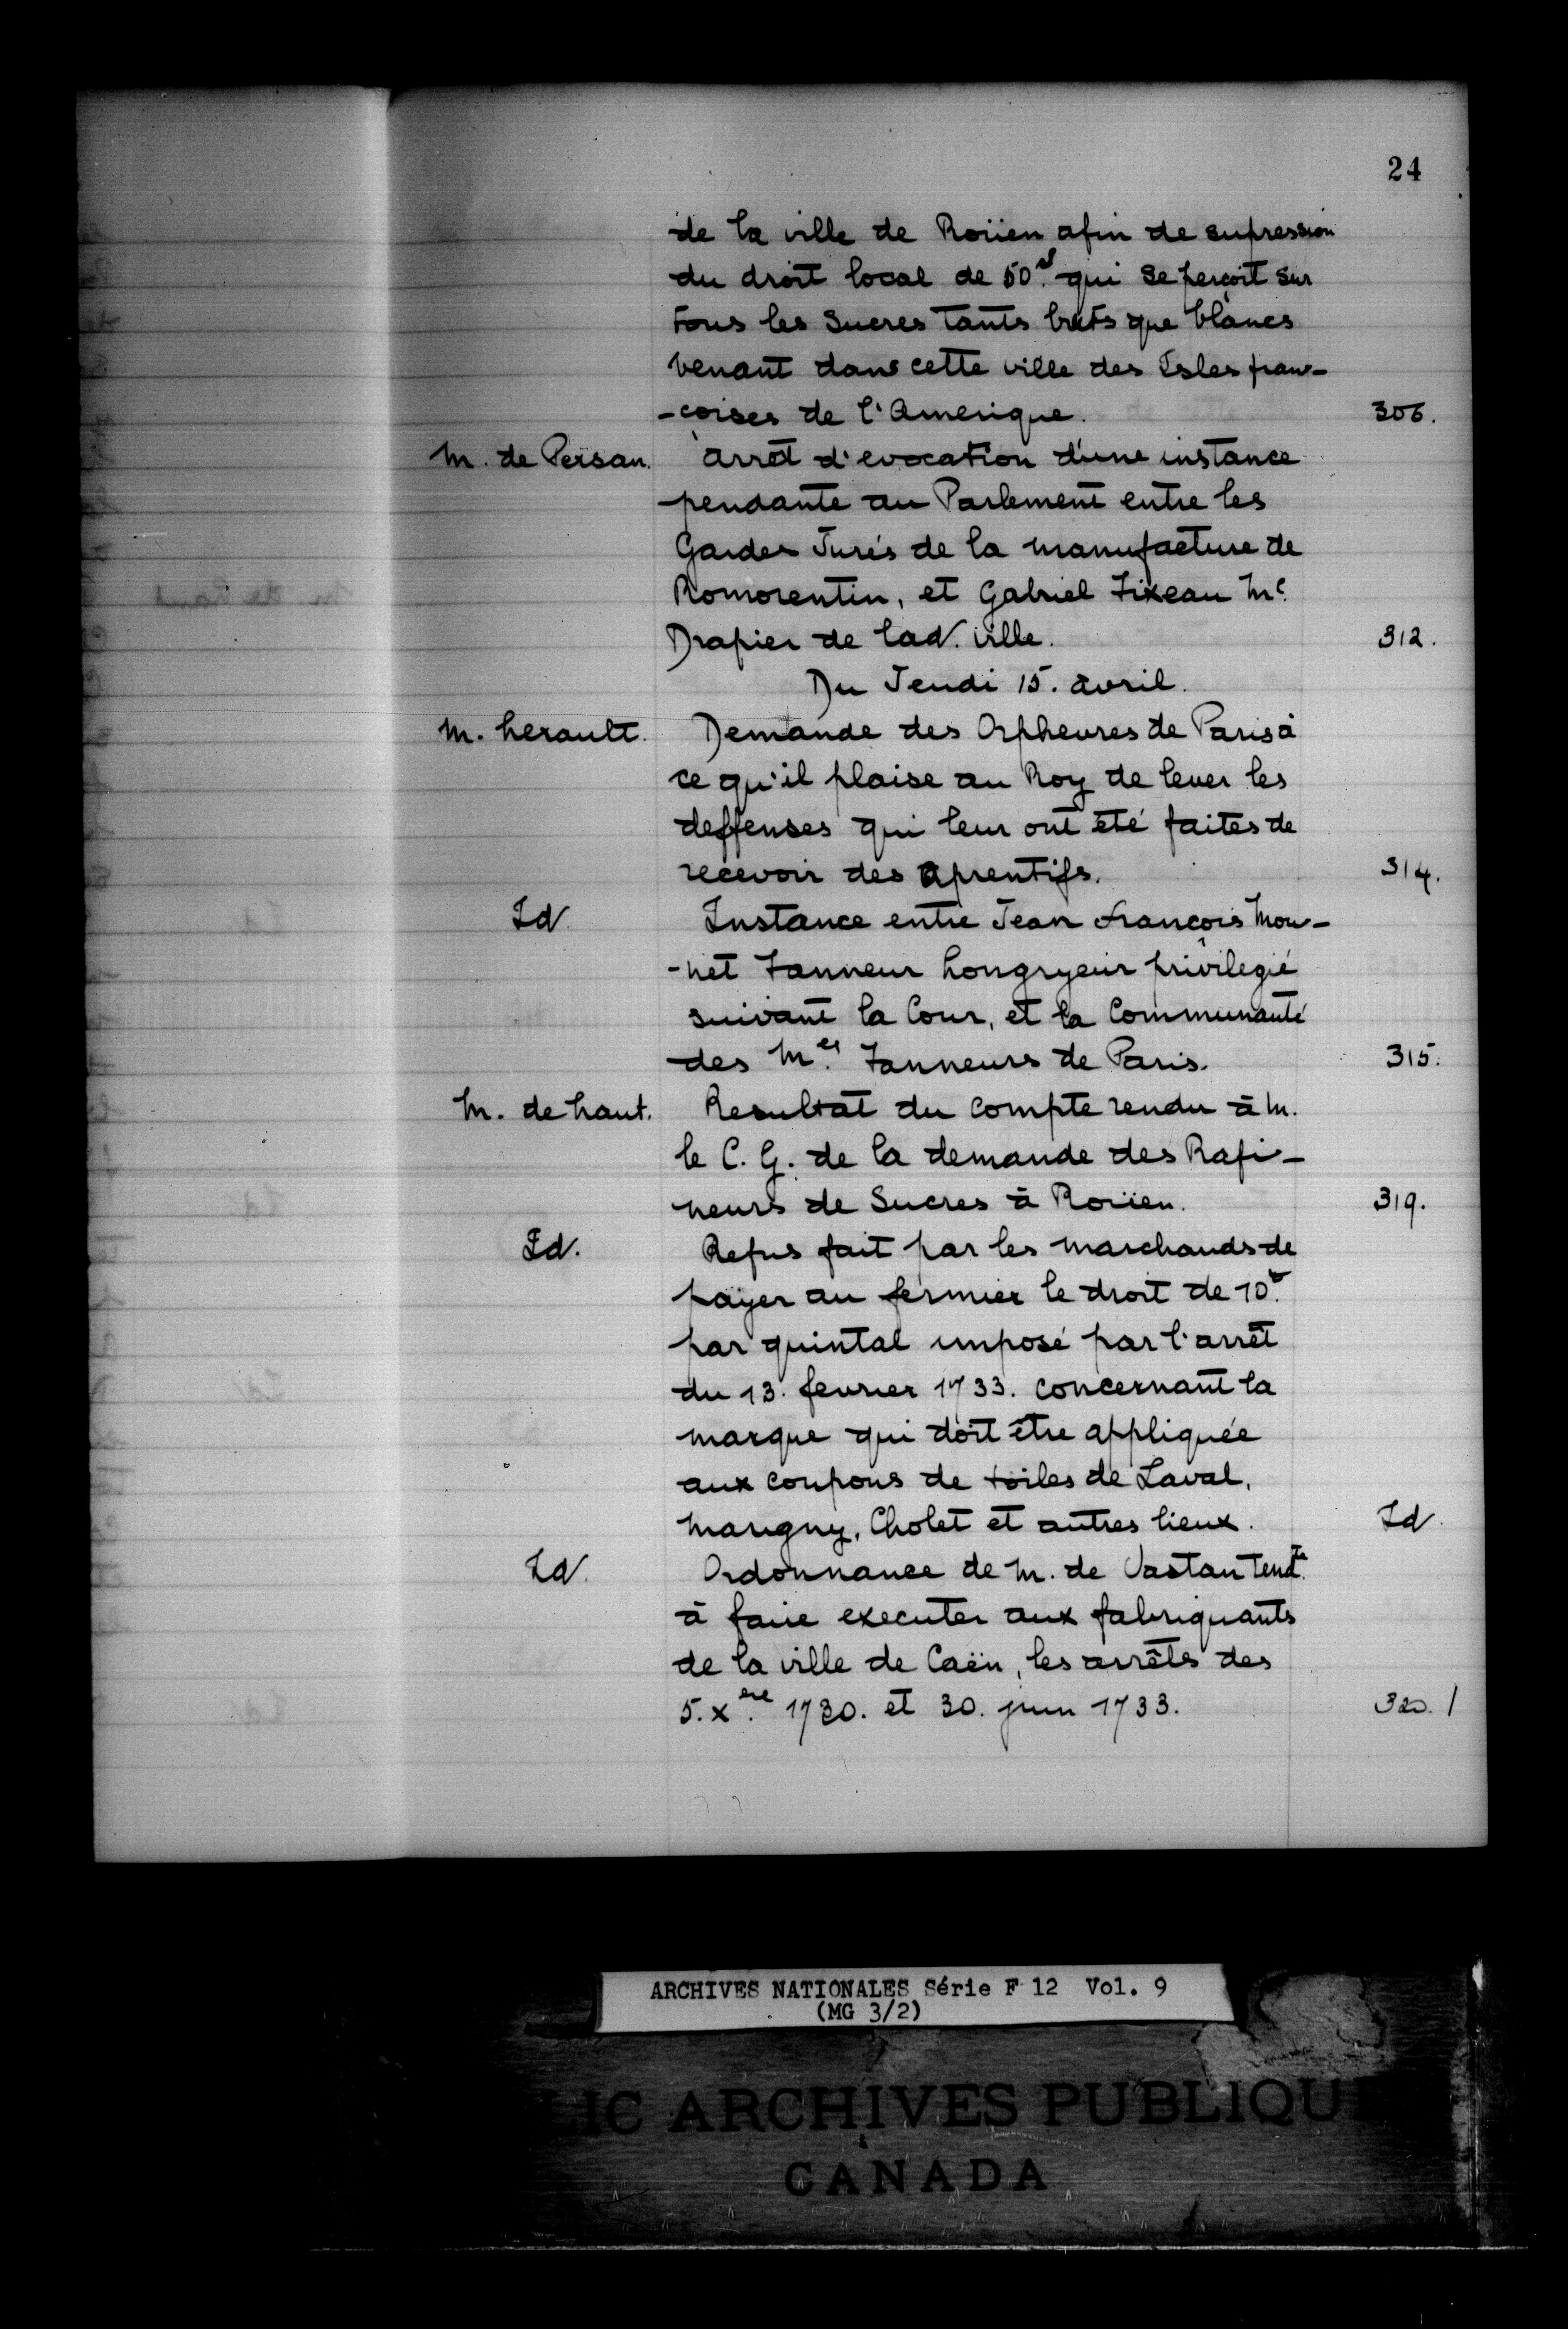 24
de la ville de Roüen afin de supression
du droit local de 50.s qui se perçoit sur
tous les Sucres tants bruts que blancs
venant dans cette ville des Isles fran-
-çoises de l'Amerique. 306.
M. de Persan. Arrêt d'evocation d'une instance
pendante au Parlement entre les
Gardes Jurés de la manufacture de
Romorentin, et Gabriel Fixeau Me.
Drapier de lad. ville. 312.
Du Jeudi 15. avril.
M. herault. Demande des Orphevres de Paris à
ce qu'il plaise au Roy de lever les
deffenses qui leur ont été faites de
recevoir des aprentifs. 314.
Id. Instance entre Jean François Mou-
-net Tanneur hongryeur privilegié
suivant la Cour, et la Communauté
des Mes. Tanneurs de Paris. 315.
M. de haut. Resultat du compte rendu à M.
le C. G. de la demande des Rafi-
neurs de Sucres à Roüen. 319.
Id. Refus fait par les marchands de
païyer au fermier le droit de 10.s
par quintal imposé par l'arrêt
du 13. fevrier 1733. concernant la
marque qui doit être appliquée
aux coupons de toiles de Laval,
Marigny, Cholet et autres lieux. Id.
Id. Ordonnance de M. de Vastan tend.te
à faire executer aux fabriquants
de la ville de Caën, les arrêts des
5. Xere. 1730. et 30. juin 1733. 320. /
ARCHIVES NATIONALES Série F 12 Vol. 9
(MG 3/2)
LIC ARCHIVES PUBLIQUE
CANADA